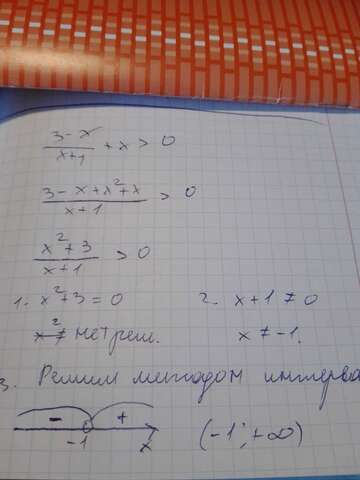 (3-x)/(x+1) + x > 0
(3-x+x²+x)/(x+1) > 0
(x²+3)/(x+1) > 0
1. x²+3=0 2. x+1≠0
x²≠ нет реш. x≠-1.
3. Решим методом интерва
- +
-1 x (-1;+∞)